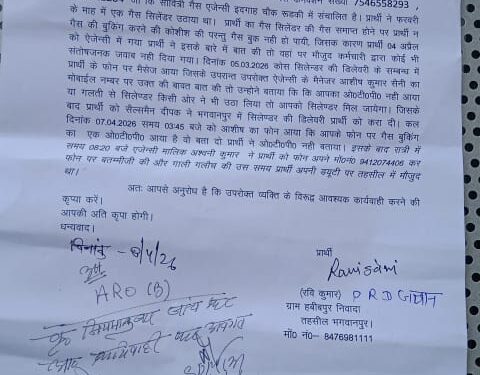 जो कि सावित्री गैस एजेन्सी ईदगाह चौक रूडकी में संचालित है। प्रार्थी ने फरवरी
के माह में एक गैस सिलेंडर उठाया था। प्रार्थी का गैस सिलेंडर की गैस समाप्त होने पर प्रार्थी न
गैस की बुकिंग करने की कोशीश की परन्तु गैस बुक नही हो पायी, जिसक कारण प्रार्थी 04 अप्रैल
को ऐजेन्सी में गया प्रार्थी न इसके बारे में बात की तो वहां पर मौजूद कर्मचारी द्वारा कोई भी
संतोषजनक जवाब नही दिया गया। दिनांक 05.03.2026 कोस सिलेन्डर की डिलेवरी के सम्बन्ध में
प्रार्थी के फोन पर मैसेज आया जिसके उपरान्त उपरोक्त ऐजेन्सी के मैनेजर आशीष कुमार सैनी का
मोबाईल नम्बर पर उक्त की बाबत बात की तो उन्होने बताया कि कि आपका ओ०टी०पी० नही आया
या गलती से सिलेण्डर किसी ओर ने भी उठा लिया तो आपको सिलेण्डर मिल जायेगा। जिसके
बाद प्रार्थी को सैल्समैन दीपक ने भगवानपुर में सिलेन्डर की डिलेवरी प्रार्थी को करा दी। कल
दिनांक 07.04.2026 समय 03:45 बजे को आशीष का फोन आया कि आपके फोन पर गैस बुकिंग
का एक ओ०टी०पी० आया है वो बता दो प्रार्थी ने ओ०टी०पी० नही बताया। इसके बाद रात्री में
समय 08:20 बजे एजेन्सी मालिक अश्वनी कुमार ने प्रार्थी को फोन अपने मो०नं० 9412074406 कर
फोन पर बतम्मीजी की और गाली गलौच की उस समय प्रार्थी अपनी डयूटी पर तहसील में मौजूद
था।
अतः आपसे अनुरोध है कि उपरोक्त व्यक्ति के विरूद्ध आवश्यक कार्यवाही करने की
कृप्या करें।
आपकी अति कृपा होगी।
धन्यवाद।
दिनांक - 8/4/26
प्रार्थी
Ravi saini
ARO (B)
(रवि कुमार) P R D जवान
ग्राम हबीबपुर निवादा
तहसील भगवानपुर।
मो० नं०– 8476981111